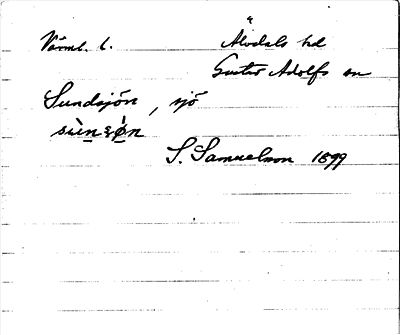 Värml. l. Älvdals hd
Gustav Adolfs sn
Sundsjön, sjö
S. Samuelsson 1899